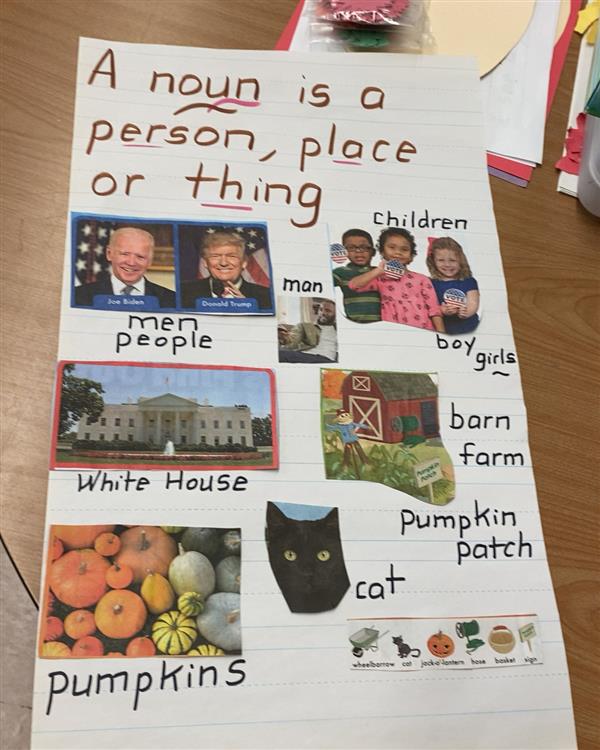 A noun is a
person, place
or thing
children
VOTE
VOTE
man
Joe Biden
Donald Trump
men
people
boy
girls
barn
farm
Pumpkin
Patch
White House
pumpkin
patch
cat
wheelbarrow cat jack-o'-lantern hose basket sign
pumpkins